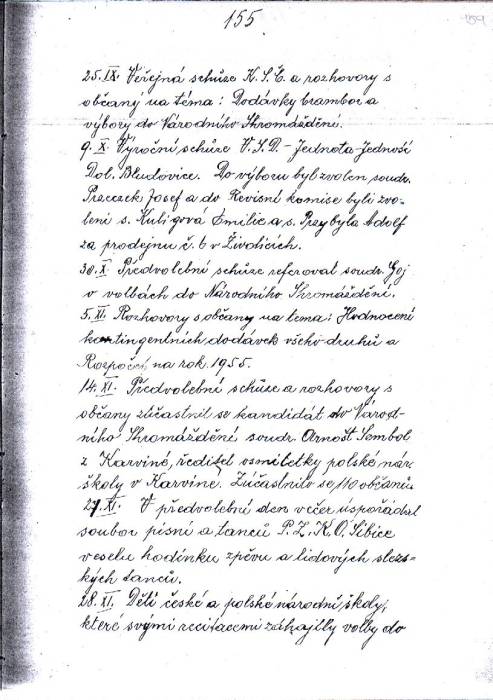 155
25. IX. Veřejná schůze K.S.Č. a rozhovory s
občany na téma: Dodávky brambor a
výbory do Národního Shromáždění.
9. X. Výroční schůze V.S.D. - Jednota - Jednosí
Dol. Bludovice. Do výboru byl zvolen soudr.
Praczek Josef a do Revisní komise byli zvo-
leni s. Kuligová Emilie a s. Przybyla Adolf
za prodejnu č. 6 v Životicích.
30. X. Předvolební schůze referoval soudr. Goj
v volbách do Národního Shromáždění.
5. XI. Rozhovory s občany na téma: Hodnocení
kontingentních dodávek všeho druhů a
Rozpočet na rok 1955.
14. XI. Předvolební schůze a rozhovory s
občany zúčastnil se kandidát do Národ-
ního Shromáždění soudr. Arnošt Sembol
z Karviné, ředitel osmiletky polské nár.
školy v Karvine. Zúčastnilo se 110 občanů.
27. XI. V předvolební den večer úspořádal
soubor písní a tanců P.Z.K.O. Sibice
veselu hodinku zpěvu a lidových slezs-
kých tanců.
28. XI. Děti české a polské národní školy,
které svými recitacemi zahájlly volby do